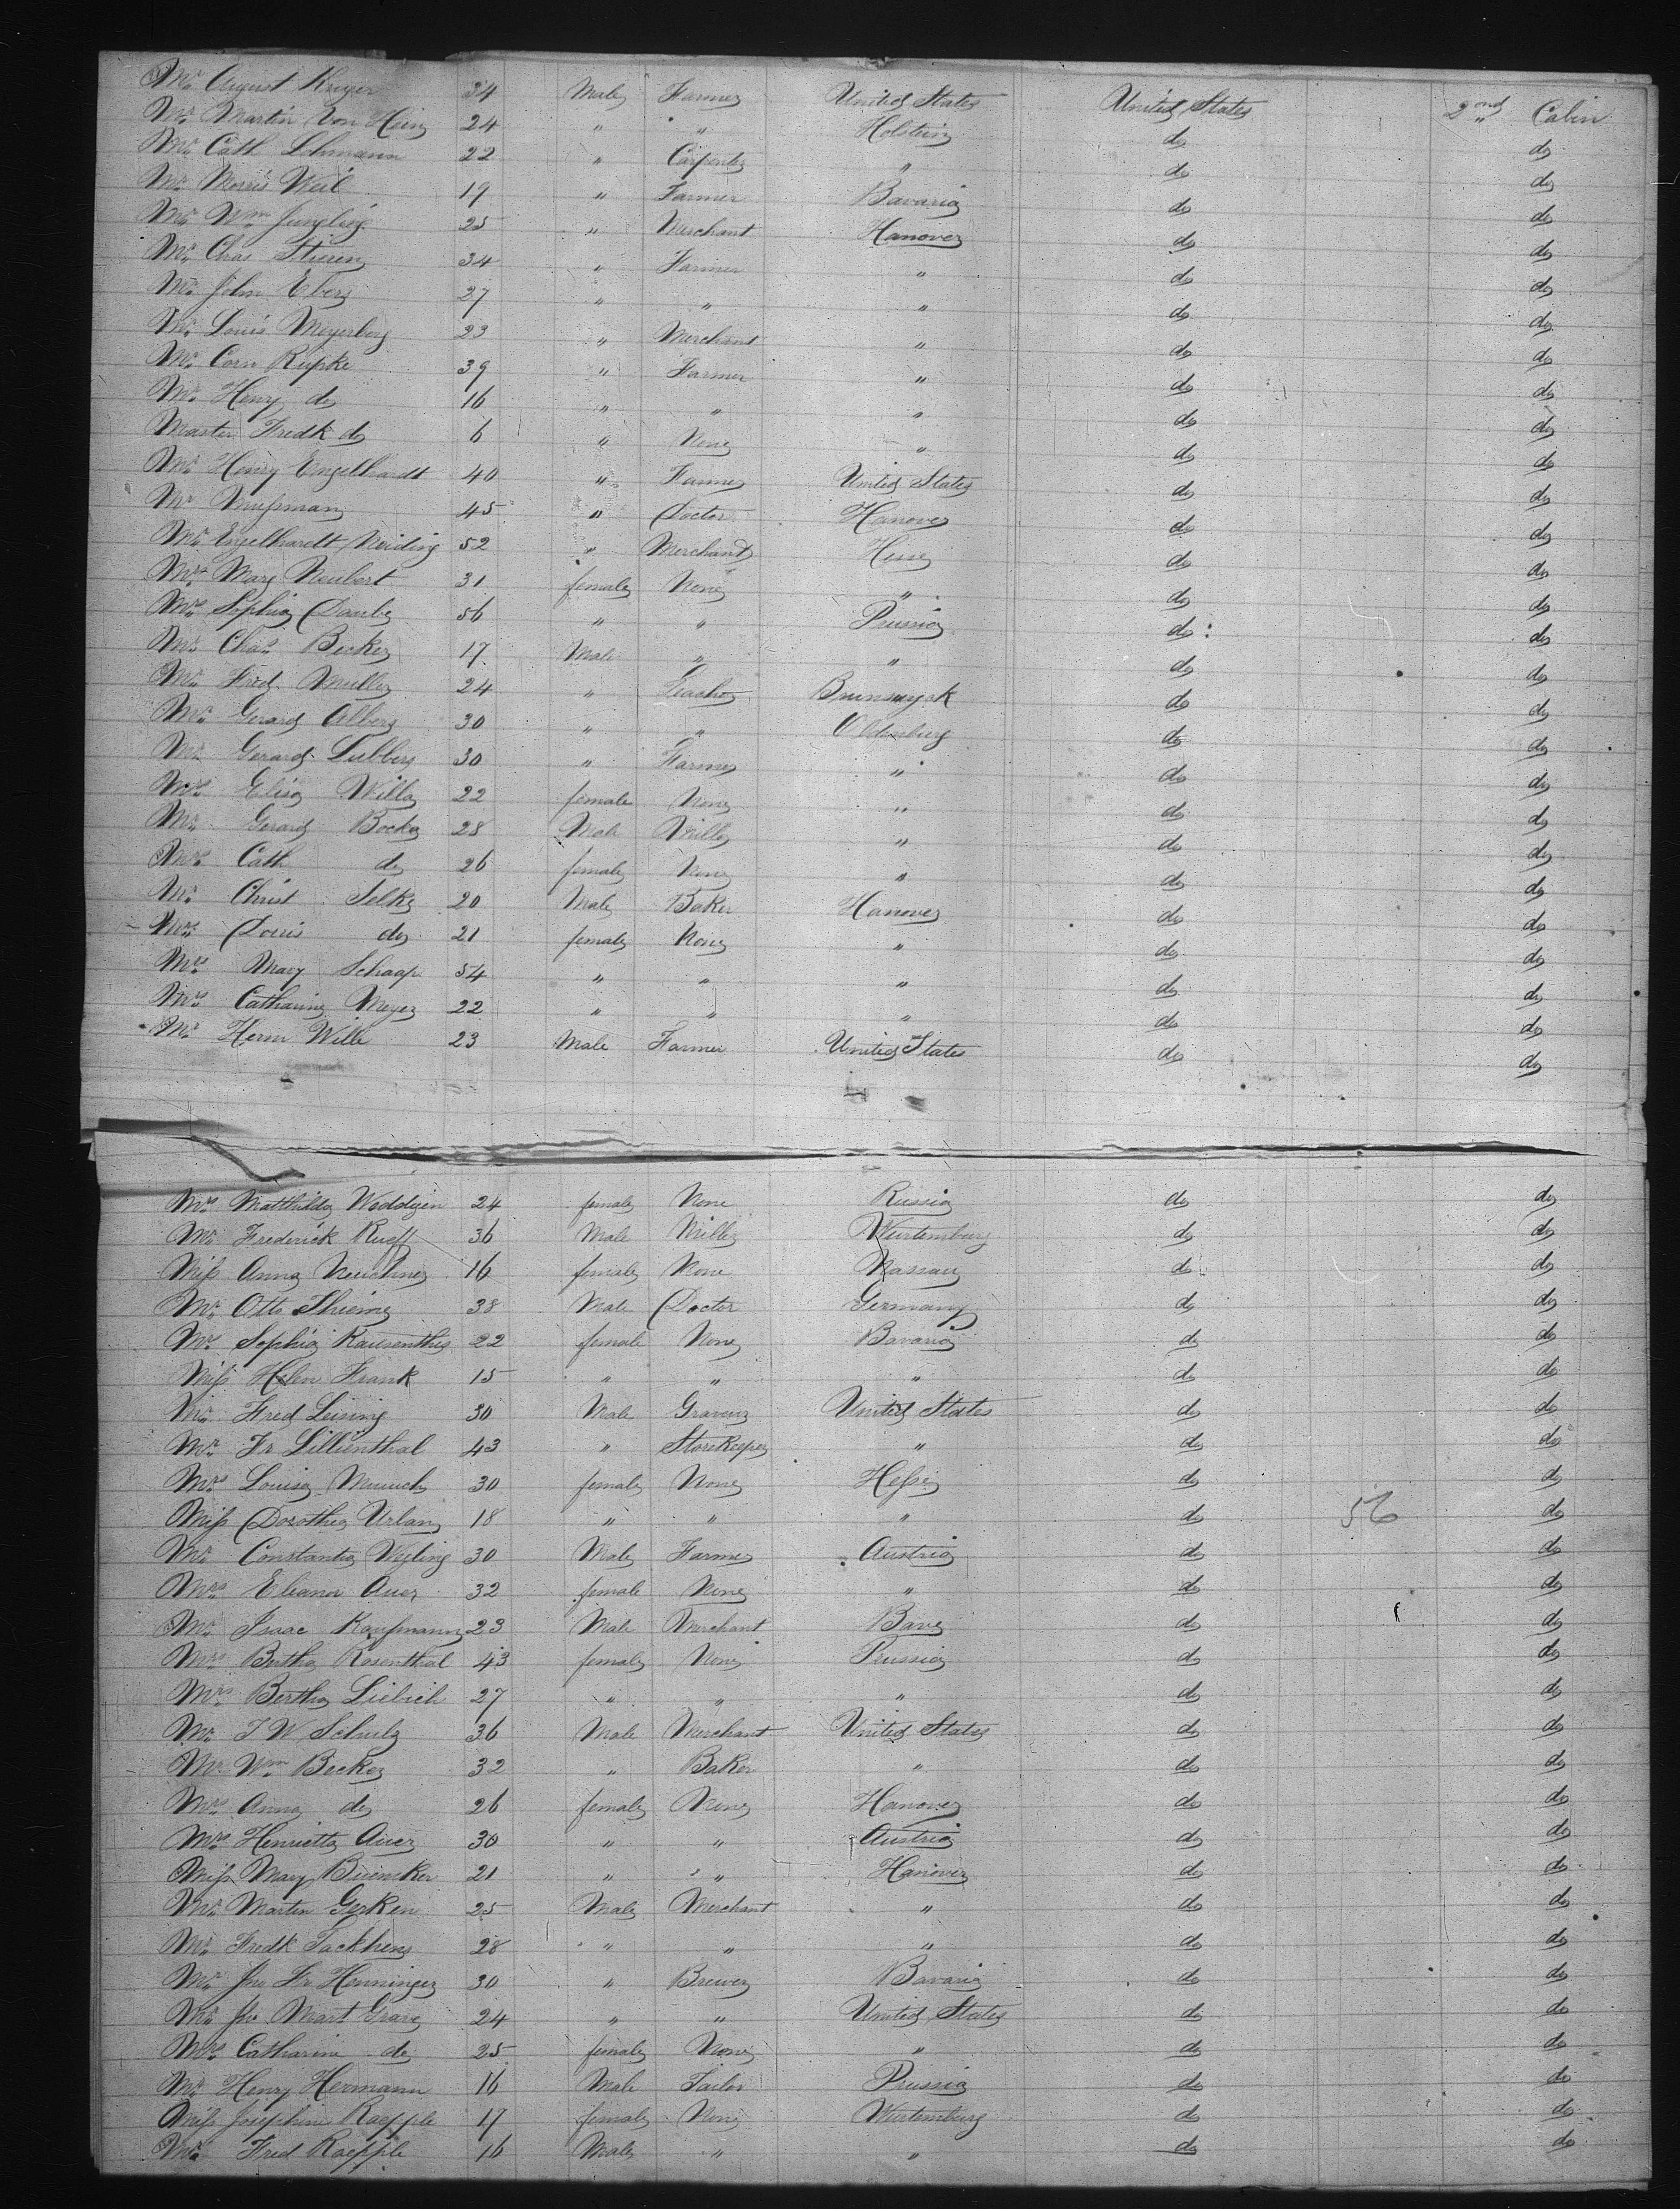 Mr. August Kruger 34 Male Farmer United States United States 2nd Cabin
Mr. Martin Von Hein 24 " " Holstein do do
Mr. Cath Lehmann 22 " Carpenter " do do
Mr. Morris Weil 19 " Farmer Bavaria do do
Mr. Wm Jungling 25 " Merchant Hanover do do
Mr. Chas Stieren 34 " Farmer " do do
Mr. John Ebers 27 " " " do do
Mr. Louis Meyerberg 23 " Merchant " do do
Mr. Corn Rupke 39 " Farmer " do do
Mr. Henry do 16 " " " do do
Master Fredk do 6 " None " do do
Mr. Henry Engelhardt 40 " Farmer United States do do
Mr Mußman 45 " Doctor Hanover do do
Mr. Engelhardt Neiding 52 " Merchant Hesse do do
Mrs Mary Neubert 31 female None " do do
Mrs Sophia 56 " " Prussia do do
Mr. Chas Becker 17 Male " " do do
Mr. Fred. Muller 24 " Teacher Brunswyck do do
Mr. Gerard Albers 30 " " Oldenburg do do
Mr. Gerard Lubbers 30 " Farmer " do do
Mrs Elisa Willa 22 female None " do do
Mr. Gerard Bocker 28 Male Miller " do do
Mrs Cath do 26 female None " do do
Mr. Christ Selke 20 Male Baker Hanover do do
Mrs Doris do 21 female None " do do
Mrs Mary Schaap 54 " " " do do
Mrs Catharine Meyer 22 " " " do do
Mr Herm Wille 23 Male Farmer United States do do
Mrs Matthilda Weddigen 24 female None Russia do do
Mr. Frederick Rueff 36 Male Miller Wurtemburg do do
Miß Anna Neuchner 16 female None Nassau do do
Mr. Otto Thieme 38 Male Doctor Germany do do
Mrs Sophia 22 female None Bavaria do do
Miß Helen Frank 15 " " " do do
Mr. Fred Leising 30 Male Graveur United States do do
Mr. Fr Lillienthal 43 " Storekeeper " do do
Mrs Louisa Muench 30 female None Heßia do do
Miß Dorothea Urlang 18 " " " do 56 do
Mr. Constantia Weyling 30 Male Farmer Austria do do
Mrs Eleana Auer 32 female None " do do
Mr. Isaac Kaufmann 23 Male Merchant Bava do do
Mrs Bertha Rosenthal 43 female None Prussia do do
Mrs Bertha Liebich 27 " " " do do
Mr. J W Schulz 36 Male Merchant United States do do
Mr. Wm Becker 32 " Baker " do do
Mrs Anna do 26 female None Hanover do do
Mrs Henrietta Auer 30 " " Austria do do
Miß Mary Buensker 21 " " Hanover do do
Mr. Martin Gerken 25 Male Merchant " do do
Mr. Fredk Tackhens 28 " " " do do
Mr. Jno Fr Henninger 30 " Brewer Bavaria do do
Mr Jno Mart Grave 24 " " United States do do
Mrs Catharine do 25 female None " do do
Mr. Henry Hermann 16 Male Tailor Prussia do do
Miß Josephine Raepple 17 female None Wurtemburg do do
Mr. Fred Raepple 16 Male " " do do